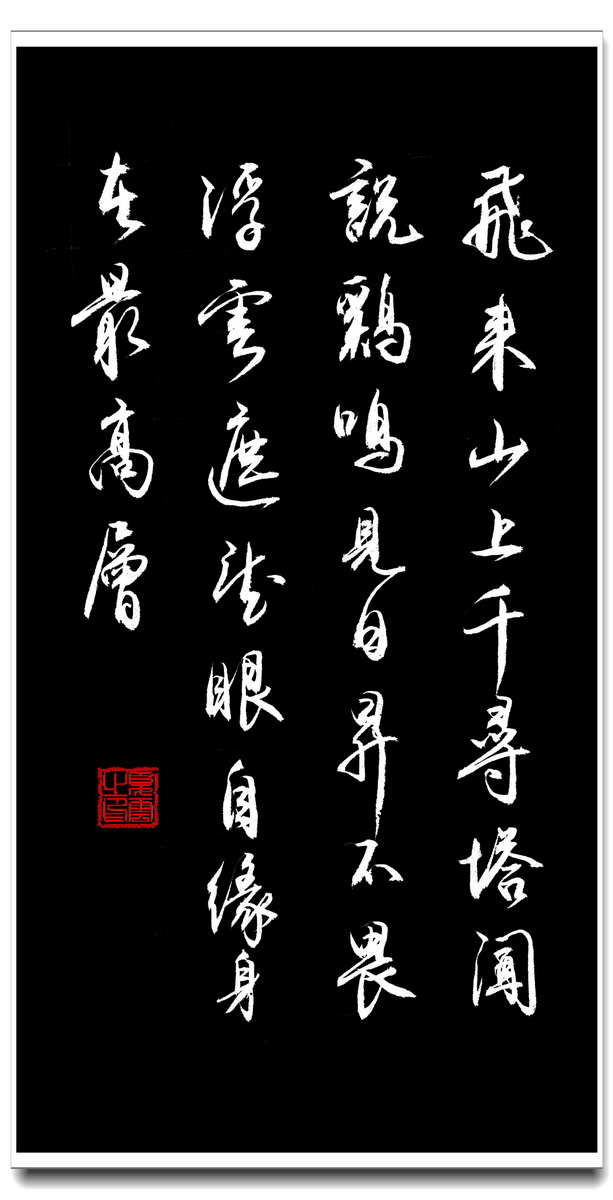 飛來山上千尋塔聞
說鷄鳴見日昇不畏
浮雲遮望眼自緣身
在最高層